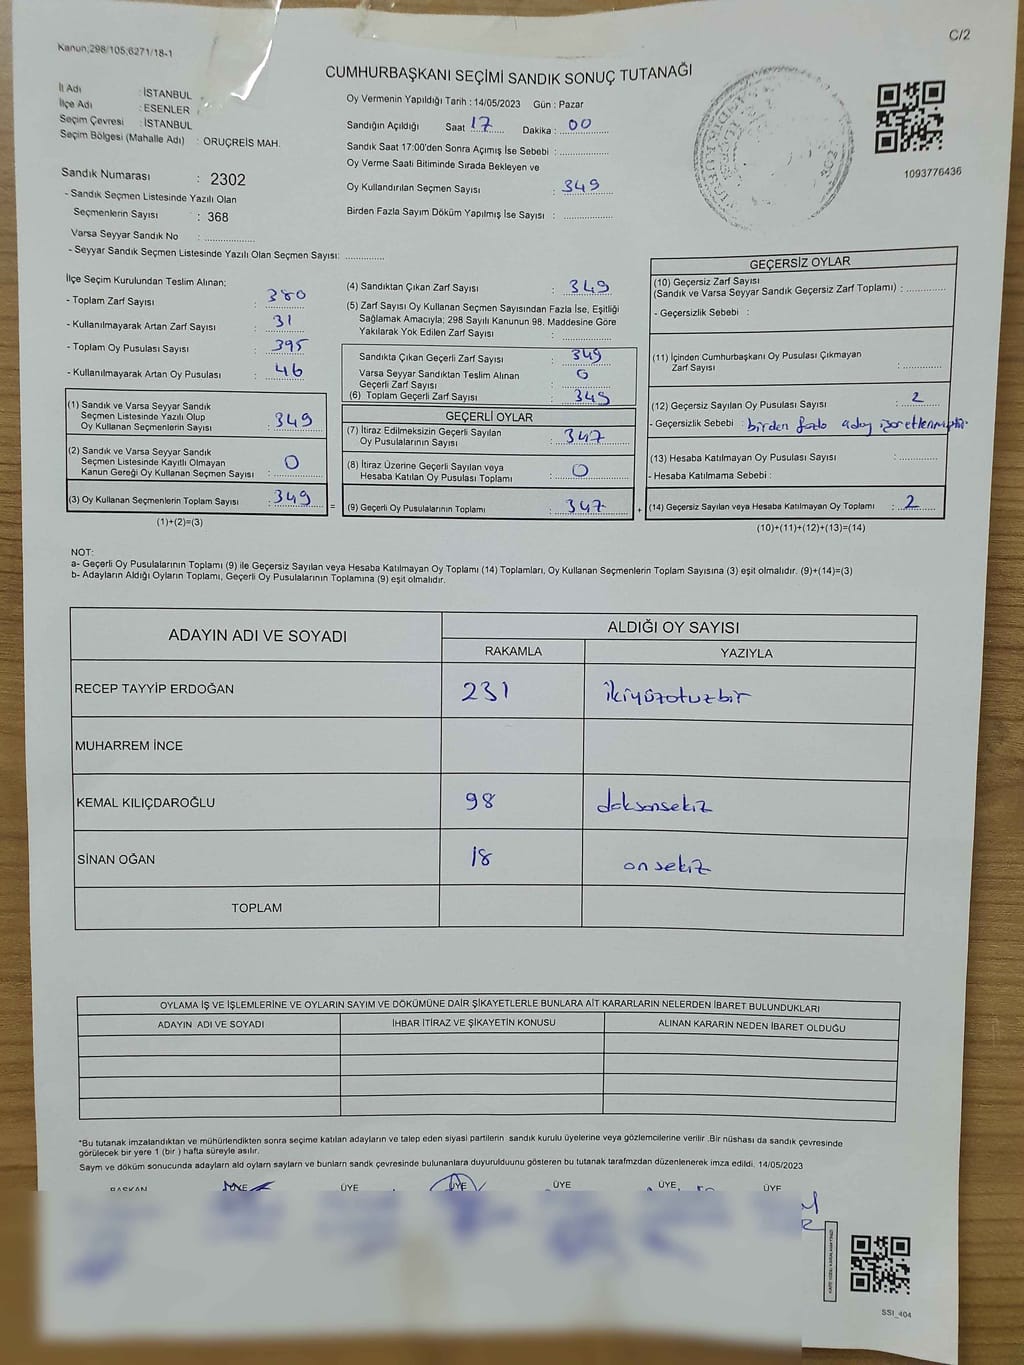 Kanun;298/105;6271/18-1
C/2
CUMHURBAŞKANI SEÇİMİ SANDIK SONUÇ TUTANAĞI
İl Adı : İSTANBUL
İlçe Adı : ESENLER
Seçim Çevresi : İSTANBUL
Seçim Bölgesi (Mahalle Adı) : ORUÇREİS MAH.
Sandık Numarası : 2302
- Sandık Seçmen Listesinde Yazılı Olan
Seçmenlerin Sayısı : 368
Varsa Seyyar Sandık No : ...............
- Seyyar Sandık Seçmen Listesinde Yazılı Olan Seçmen Sayısı: ............
Oy Vermenin Yapıldığı Tarih : 14/05/2023 Gün : Pazar
Sandığın Açıldığı Saat 17 Dakika : 00
Sandık Saat 17:00'den Sonra Açımış İse Sebebi : ...............
Oy Verme Saati Bitiminde Sırada Bekleyen ve
Oy Kullandırılan Seçmen Sayısı : 349
Birden Fazla Sayım Döküm Yapılmış İse Sayısı : ...............
1093776436
İlçe Seçim Kurulundan Teslim Alınan;
- Toplam Zarf Sayısı : 380
- Kullanılmayarak Artan Zarf Sayısı : 31
- Toplam Oy Pusulası Sayısı : 395
- Kullanılmayarak Artan Oy Pusulası : 46
(1) Sandık ve Varsa Seyyar Sandık
Seçmen Listesinde Yazılı Olup
Oy Kullanan Seçmenlerin Sayısı : 349
(2) Sandık ve Varsa Seyyar Sandık
Seçmen Listesinde Kayıtlı Olmayan
Kanun Gereği Oy Kullanan Seçmen Sayısı : 0
(3) Oy Kullanan Seçmenlerin Toplam Sayısı : 349
(1)+(2)=(3)
=
(4) Sandıktan Çıkan Zarf Sayısı : 349
(5) Zarf Sayısı Oy Kullanan Seçmen Sayısından Fazla İse, Eşitliği
Sağlamak Amacıyla; 298 Sayılı Kanunun 98. Maddesine Göre
Yakılarak Yok Edilen Zarf Sayısı : ............
Sandıkta Çıkan Geçerli Zarf Sayısı : 349
Varsa Seyyar Sandıktan Teslim Alınan
Geçerli Zarf Sayısı : 0
(6) Toplam Geçerli Zarf Sayısı : 349
GEÇERLİ OYLAR
(7) İtiraz Edilmeksizin Geçerli Sayılan
Oy Pusulalarının Sayısı : 347
(8) İtiraz Üzerine Geçerli Sayılan veya
Hesaba Katılan Oy Pusulası Toplamı : 0
(9) Geçerli Oy Pusulalarının Toplamı : 347
+
GEÇERSİZ OYLAR
(10) Geçersiz Zarf Sayısı
(Sandık ve Varsa Seyyar Sandık Geçersiz Zarf Toplamı) : ............
- Geçersizlik Sebebi :
(11) İçinden Cumhurbaşkanı Oy Pusulası Çıkmayan
Zarf Sayısı : ............
(12) Geçersiz Sayılan Oy Pusulası Sayısı : 2
- Geçersizlik Sebebi : birden fazla aday işaretlenmiştir.
(13) Hesaba Katılmayan Oy Pusulası Sayısı : ............
- Hesaba Katılmama Sebebi :
(14) Geçersiz Sayılan veya Hesaba Katılmayan Oy Toplamı : 2
(10)+(11)+(12)+(13)=(14)
NOT:
a- Geçerli Oy Pusulalarının Toplamı (9) ile Geçersiz Sayılan veya Hesaba Katılmayan Oy Toplamı (14) Toplamları, Oy Kullanan Seçmenlerin Toplam Sayısına (3) eşit olmalıdır. (9)+(14)=(3)
b- Adayların Aldığı Oyların Toplamı, Geçerli Oy Pusulalarının Toplamına (9) eşit olmalıdır.
ADAYIN ADI VE SOYADI
ALDIĞI OY SAYISI
RAKAMLA YAZIYLA
RECEP TAYYİP ERDOĞAN 231 ikiyüzotuzbir
MUHARREM İNCE
KEMAL KILIÇDAROĞLU 98 doksansekiz
SİNAN OĞAN 18 onsekiz
TOPLAM
OYLAMA İŞ VE İŞLEMLERİNE VE OYLARIN SAYIM VE DÖKÜMÜNE DAİR ŞİKAYETLERLE BUNLARA AİT KARARLARIN NELERDEN İBARET BULUNDUKLARI
ADAYIN ADI VE SOYADI İHBAR İTİRAZ VE ŞİKAYETİN KONUSU ALINAN KARARIN NEDEN İBARET OLDUĞU
*Bu tutanak imzalandıktan ve mühürlendikten sonra seçime katılan adayların ve talep eden siyasi partilerin sandık kurulu üyelerine veya gözlemcilerine verilir .Bir nüshası da sandık çevresinde
görülecek bir yere 1 (bir ) hafta süreyle asılır.
Saym ve döküm sonucunda adayların ald oylarn sayların ve bunların sandk çevresinde bulunanlara duyurulduunu gösteren bu tutanak tarafmzdan düzenlenerek imza edildi. 14/05/2023
BAŞKAN ÜYE ÜYE ÜYE ÜYE ÜYE ÜYE
SSI_404